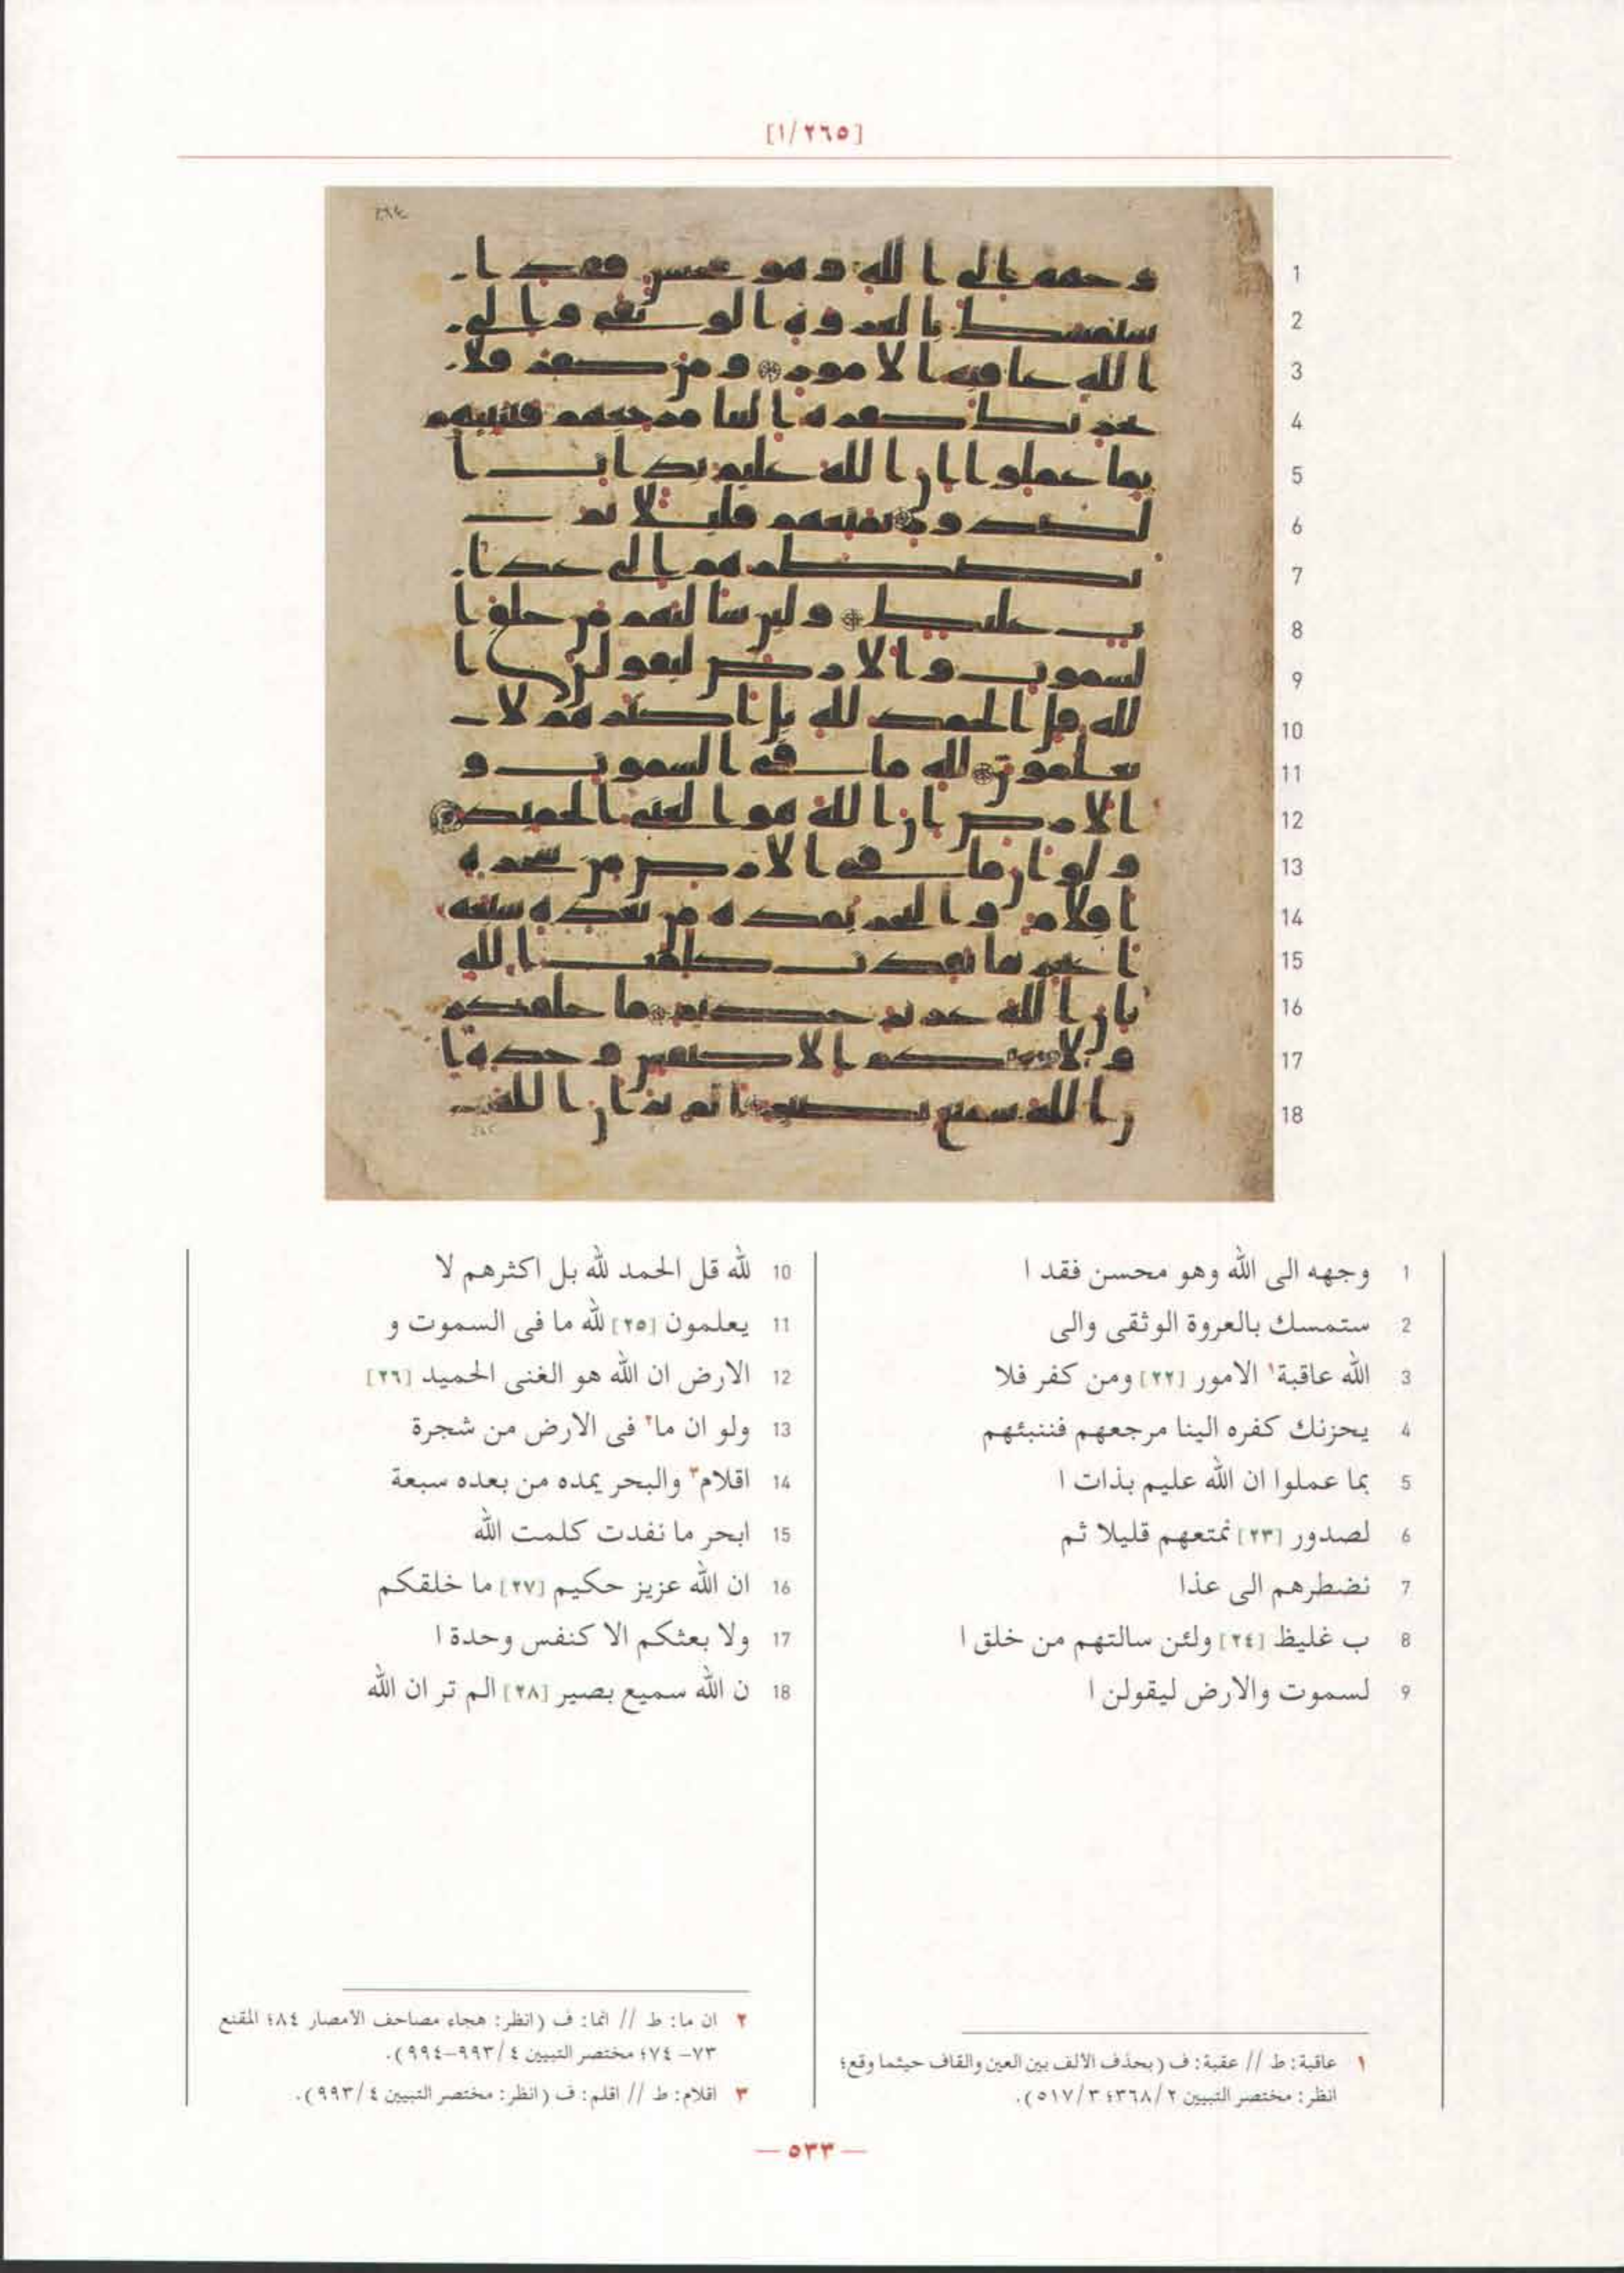 [١/٢٦٥]
1 وجهه الى الله وهو محسن فقد ا
2 ستمسك بالعروة الوثقى والى
3 الله عاقبة١ الامور [٢٢] ومن كفر فلا
4 يحزنك كفره الينا مرجعهم فننبئهم
5 بما عملوا ان الله عليم بذات ا
6 لصدور [٢٣] نمتعهم قليلا ثم
7 نضطرهم الى عذا
8 ب غليظ [٢٤] ولئن سالتهم من خلق ا
9 لسموت والارض ليقولن ا
10 لله قل الحمد لله بل اكثرهم لا
11 يعلمون [٢٥] لله ما فى السموت و
12 الارض ان الله هو الغنى الحميد [٢٦]
13 ولو ان ما٢ فى الارض من شجرة
14 اقلام٣ والبحر يمده من بعده سبعة
15 ابحر ما نفدت كلمت الله
16 ان الله عزيز حكيم [٢٧] ما خلقكم
17 ولا بعثكم الا كنفس وحدة ا
18 ن الله سميع بصير [٢٨] الم تر ان الله
١ عاقبة: ط // عقبة: ف (بحذف الألف بين العين والقاف حيثما وقع؛
انظر: مختصر التبيين ٢/٣٦٨؛ ٣/٥١٧).
٢ ان ما: ط // انما: ف (انظر: هجاء مصاحف الأمصار ٨٤؛ المقنع
٧٣–٧٤؛ مختصر التبيين ٤/٩٩٣–٩٩٤).
٣ اقلام: ط // اقلم: ف (انظر: مختصر التبيين ٤/٩٩٣).
— ٥٣٣ —